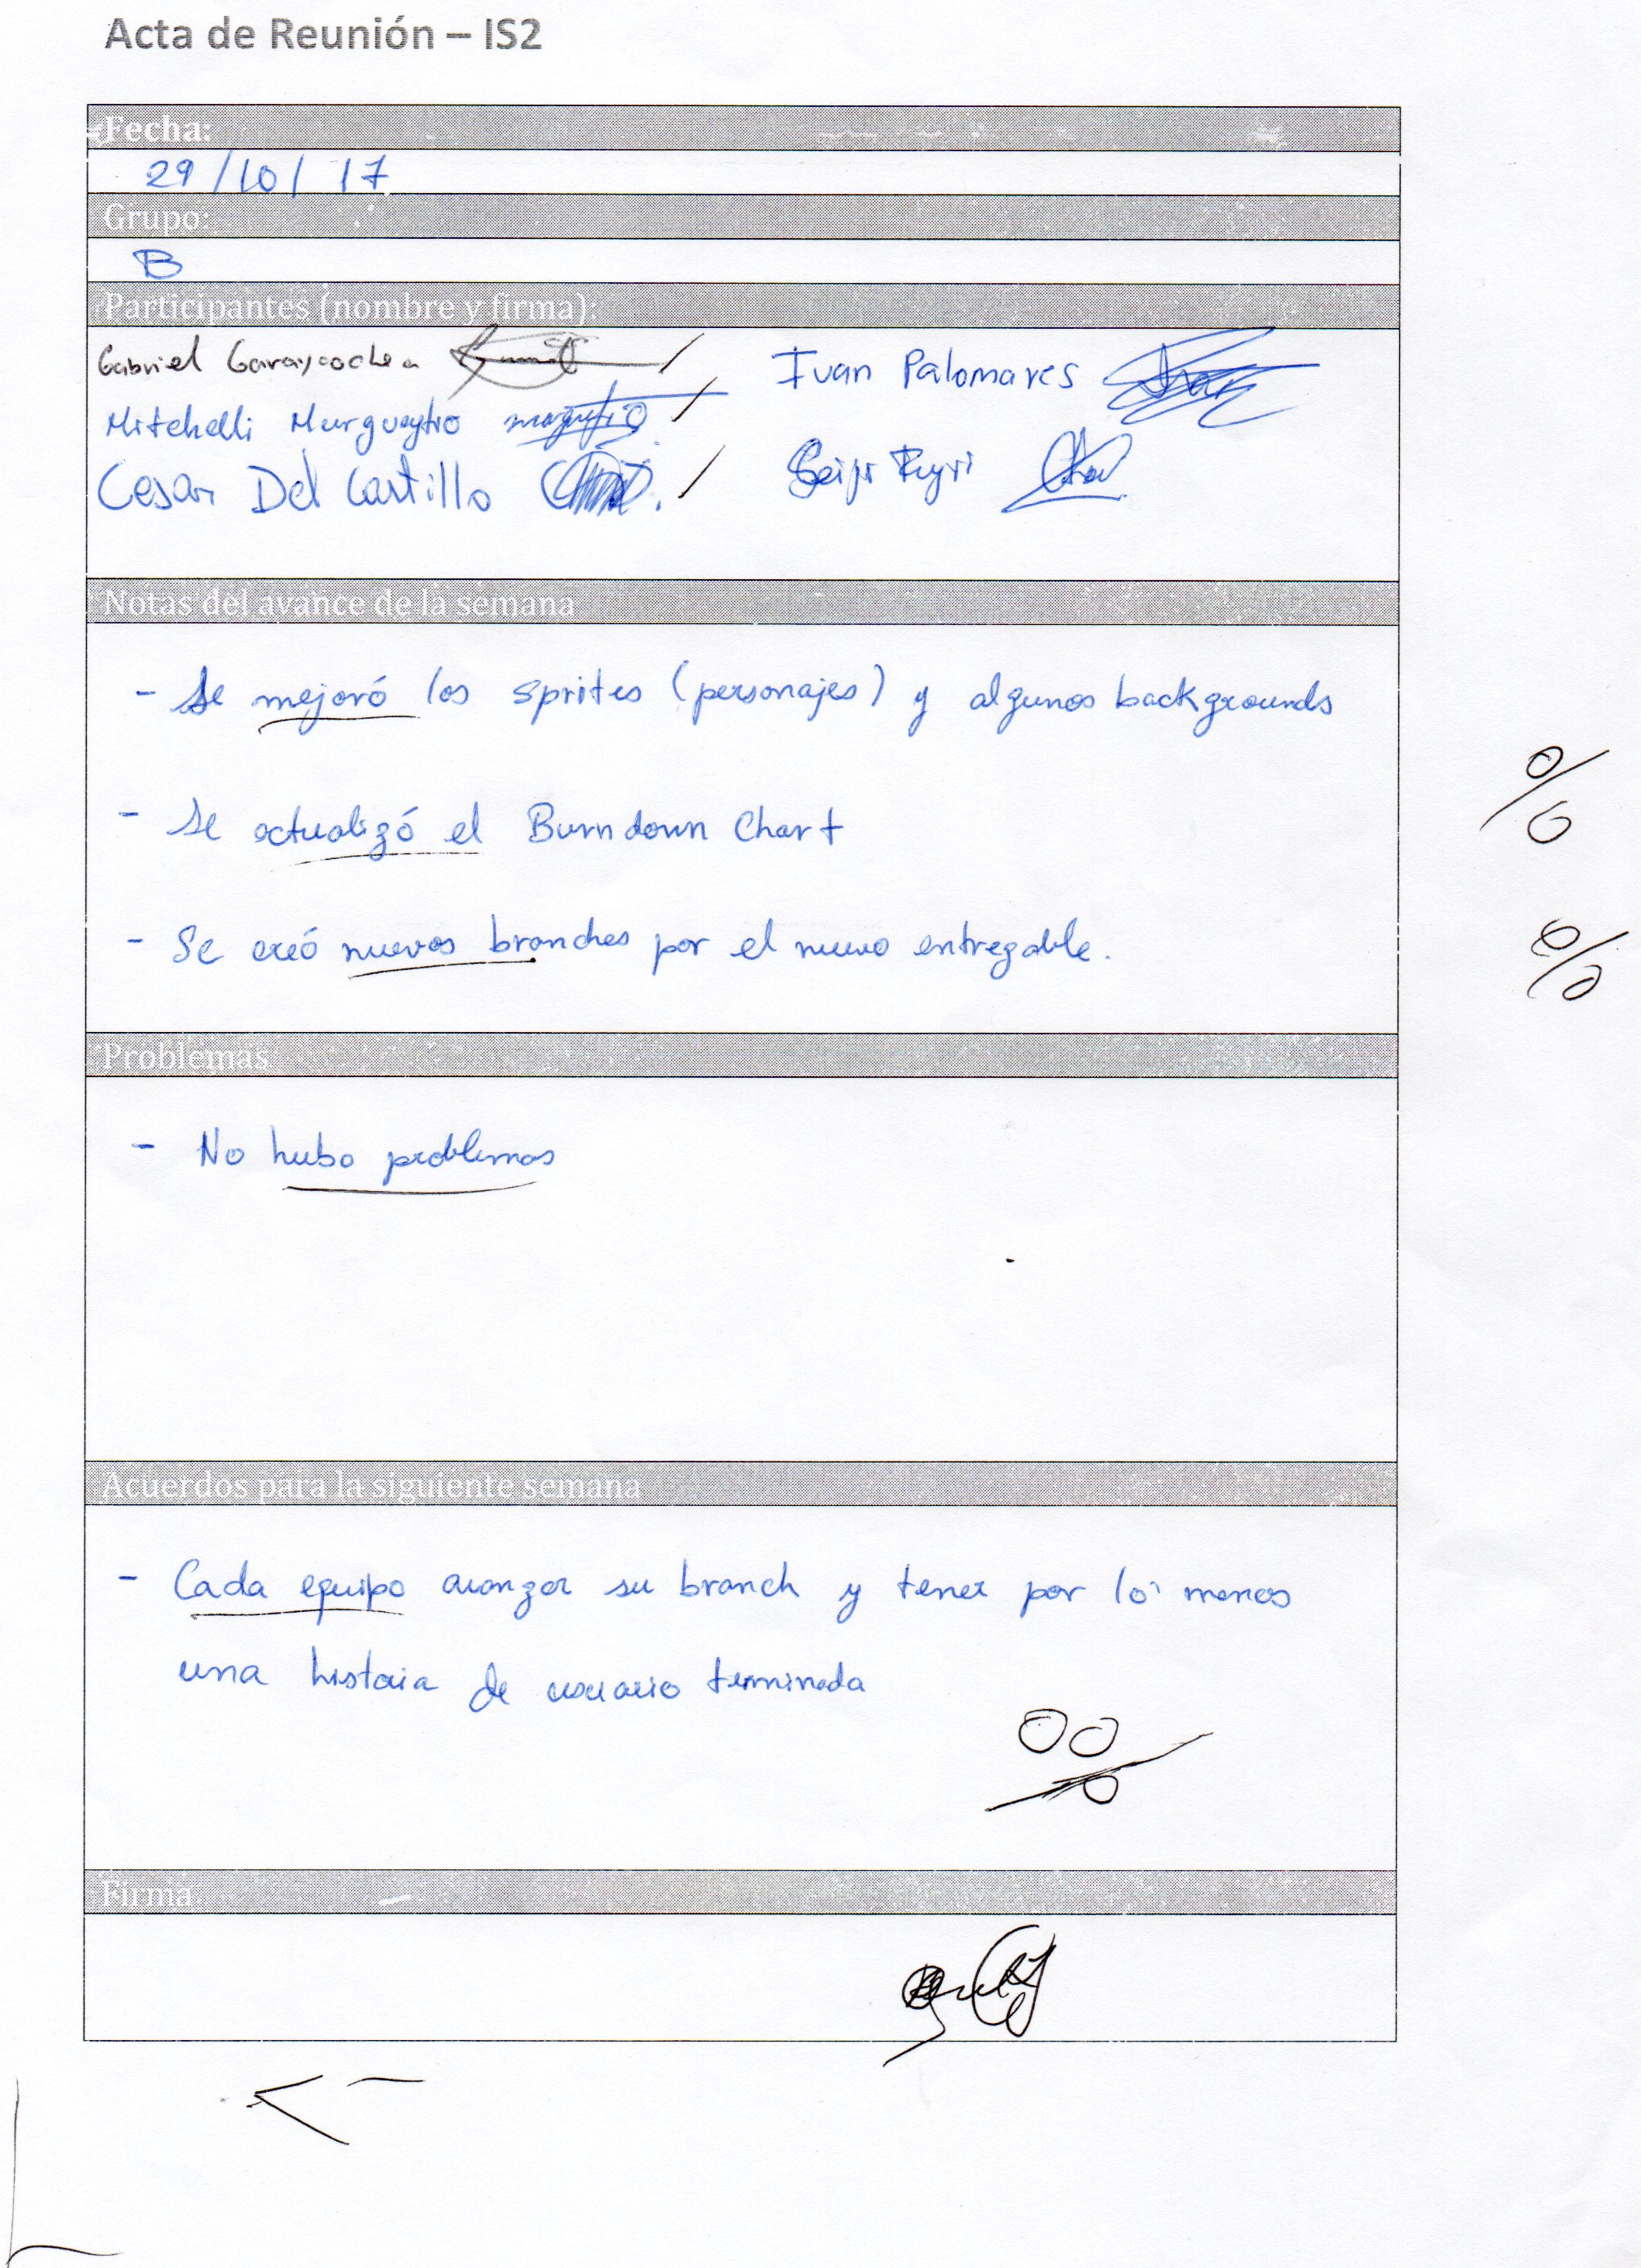 Acta de Reunión – IS2
Fecha:
29/10/17
Grupo:
B
Participantes (nombre y firma):
Gabriel Garaycochea
Ivan Palomares
Mitchelli Murgueytio
Cesar Del Castillo
Notas del avance de la semana
- Se mejoró los sprites (personajes) y algunos backgrounds
- Se actualizó el Burndown Chart
- Se creó nuevos branches por el nuevo entregable.
Problemas
- No hubo problemas
Acuerdos para la siguiente semana
- Cada equipo avanzar su branch y tener por lo menos
una historia de usuario terminada
Firma